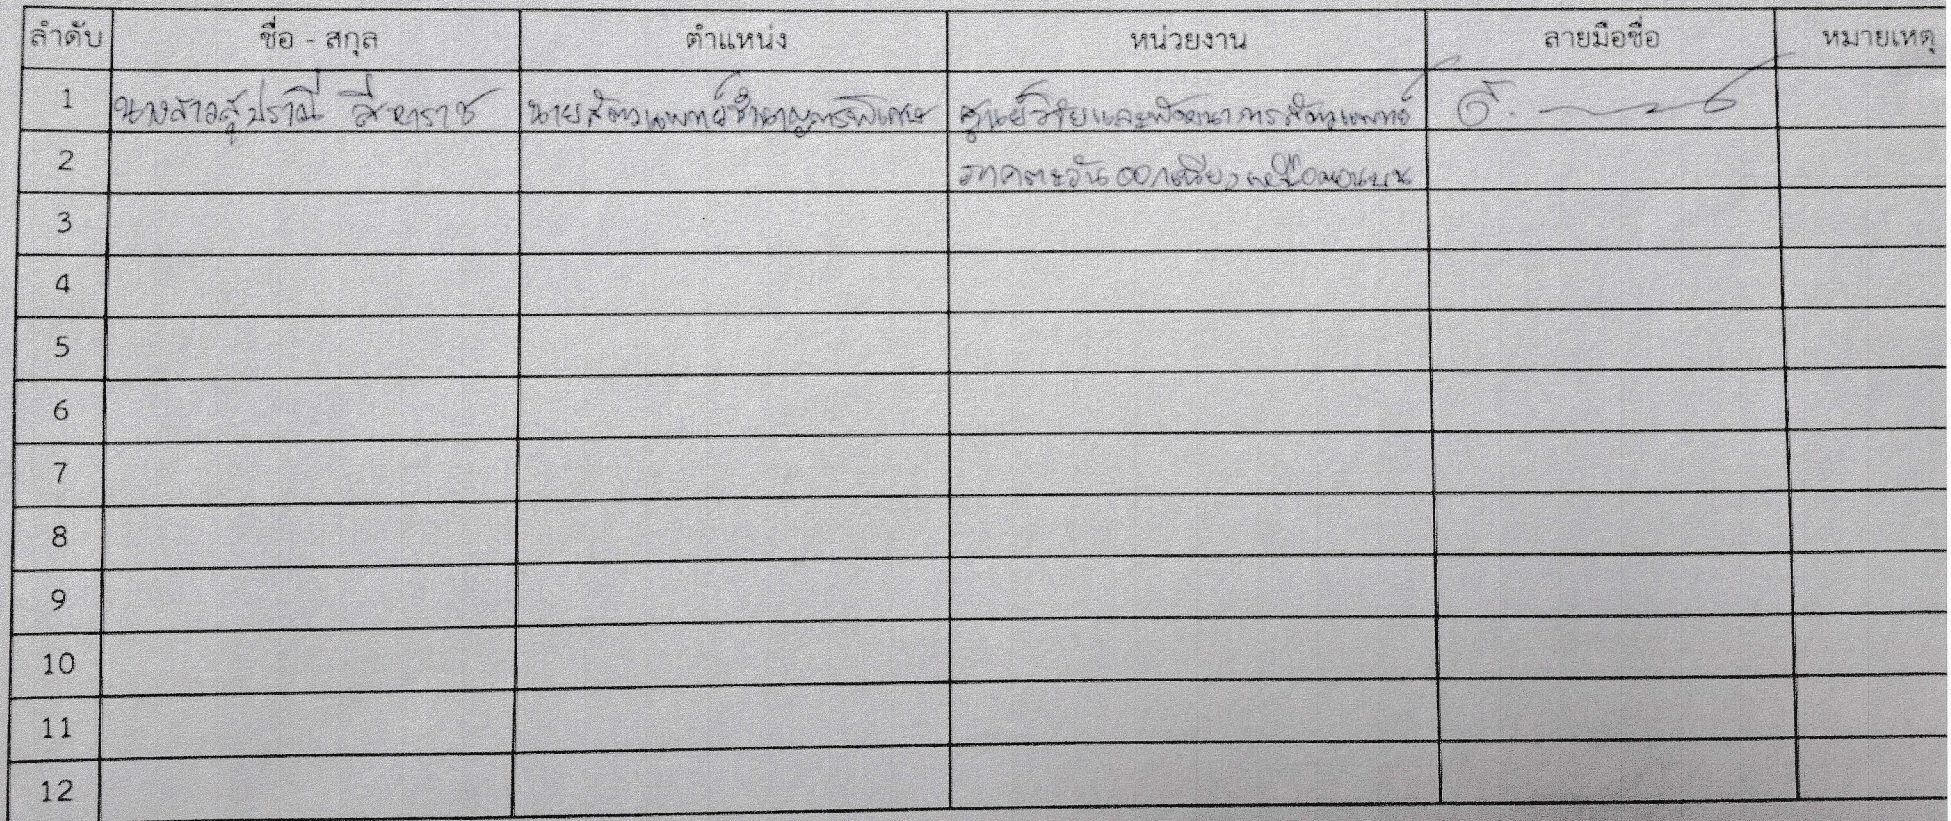 ลำดับ ชื่อ - สกุล ตำแหน่ง หน่วยงาน ลายมือชื่อ หมายเหตุ
1 นางสาวสุปราณี สีหาราช นายสัตวแพทย์ชำนาญการพิเศษ ศูนย์วิจัยและพัฒนาการสัตวแพทย์
2 ภาคตะวันออกเฉียงเหนือตอนบน
3
4
5
6
7
8
9
10
11
12